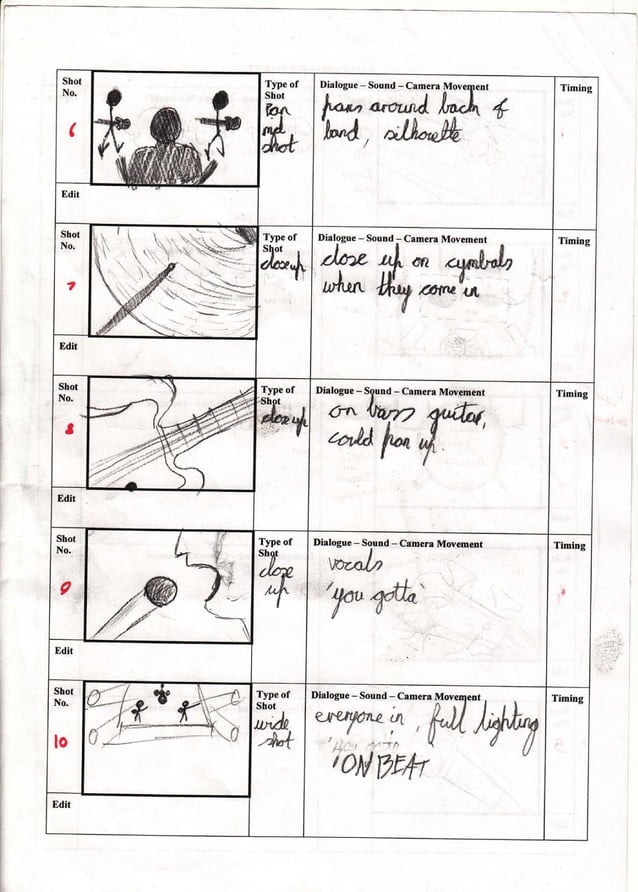 Shot
No.
6
Type of
Shot
Pan
mid
shot
Dialogue – Sound – Camera Movement
pans around back of
band, silhouette
Timing
Edit
Shot
No.
7
Type of
Shot
close up
Dialogue – Sound – Camera Movement
close up on cymbals
when they come in
Timing
Edit
Shot
No.
8
Type of
Shot
close up
Dialogue – Sound – Camera Movement
on bass guitar,
could pan up.
Timing
Edit
Shot
No.
9
Type of
Shot
close
up
Dialogue – Sound – Camera Movement
vocals
'you gotta'
Timing
Edit
Shot
No.
10
Type of
Shot
wide
shot
Dialogue – Sound – Camera Movement
everyone in, full lighting
'you gotta
'ON BEAT
Timing
Edit